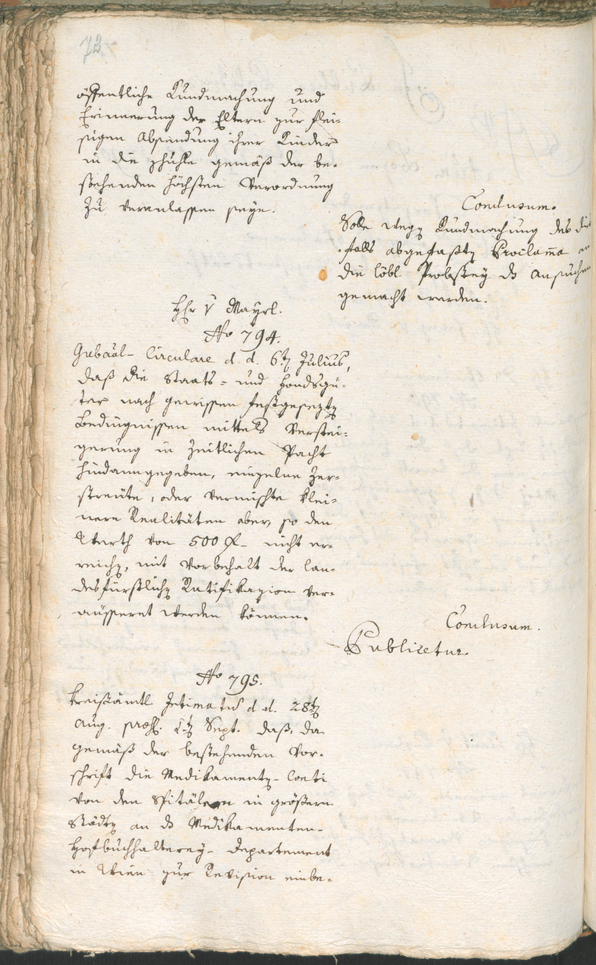 72.
öffentliche Kundmachung und
Erinnerung der Eltern zur flei-
ßigen Absendung ihrer Kinder
in die Schuhle gemäß der be-
stehenden höchsten Verordnung
zu veranlassen seye.
Conclusum.
Solle wegen Kundmachung des dies-
falls abgefaßten Proclama an
die löbl. Probstey das Ansuchen
gemacht werden.
Hr v Mayrl.
No 794.
Gubaal-Circulare d. d. 6ten Julius,
daß die Staats- und Fondsgü-
ter nach gewissen festgesezten
Bedingnissen mittels Verstei-
gerung in zeitlichen Pacht
hindanngegeben, einzelne zer-
streüte, oder vermischte klei-
nere Realitäten aber, so den
Werth von 500 f nicht er-
reichen, mit Vorbehalt der lan-
desfürstlichen Ratifikazion ver-
äusseret werden können.
Conclusum.
Publicetur
No 795.
Kreisämtl Intimatum d. d. 28ten
Aug. præs. 1ten Sept. daß, da
gemäß der bestehenden Vor-
schrift die Medikamenten-Conti
von den Spitälern in größern
Städten an das Medikamenten-
Hofbuchhalterey-Departement
in Wien zur Revision einbe-